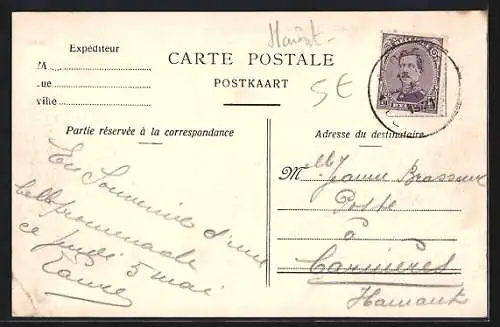 Hainaut
Expéditeur
CARTE POSTALE
M
POSTKAART
5€
Rue
Ville
Partie réservée à la correspondance
Adresse du destinataire
En Souvenir d'une
belle promenade
ce jeudi 5 mai
Laure
M elle Jeanne Brasseur
Poste
à
Carnières
Hainaut